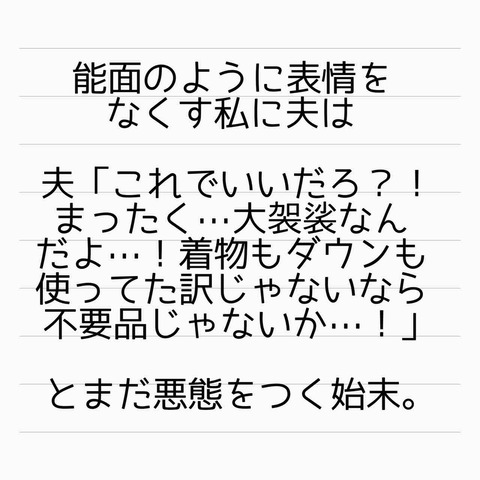 能面のように表情を
なくす私に夫は
夫「これでいいだろ？！
まったく…大袈裟なん
だよ…！着物もダウンも
使ってた訳じゃないなら
不要品じゃないか…！」
とまだ悪態をつく始末。